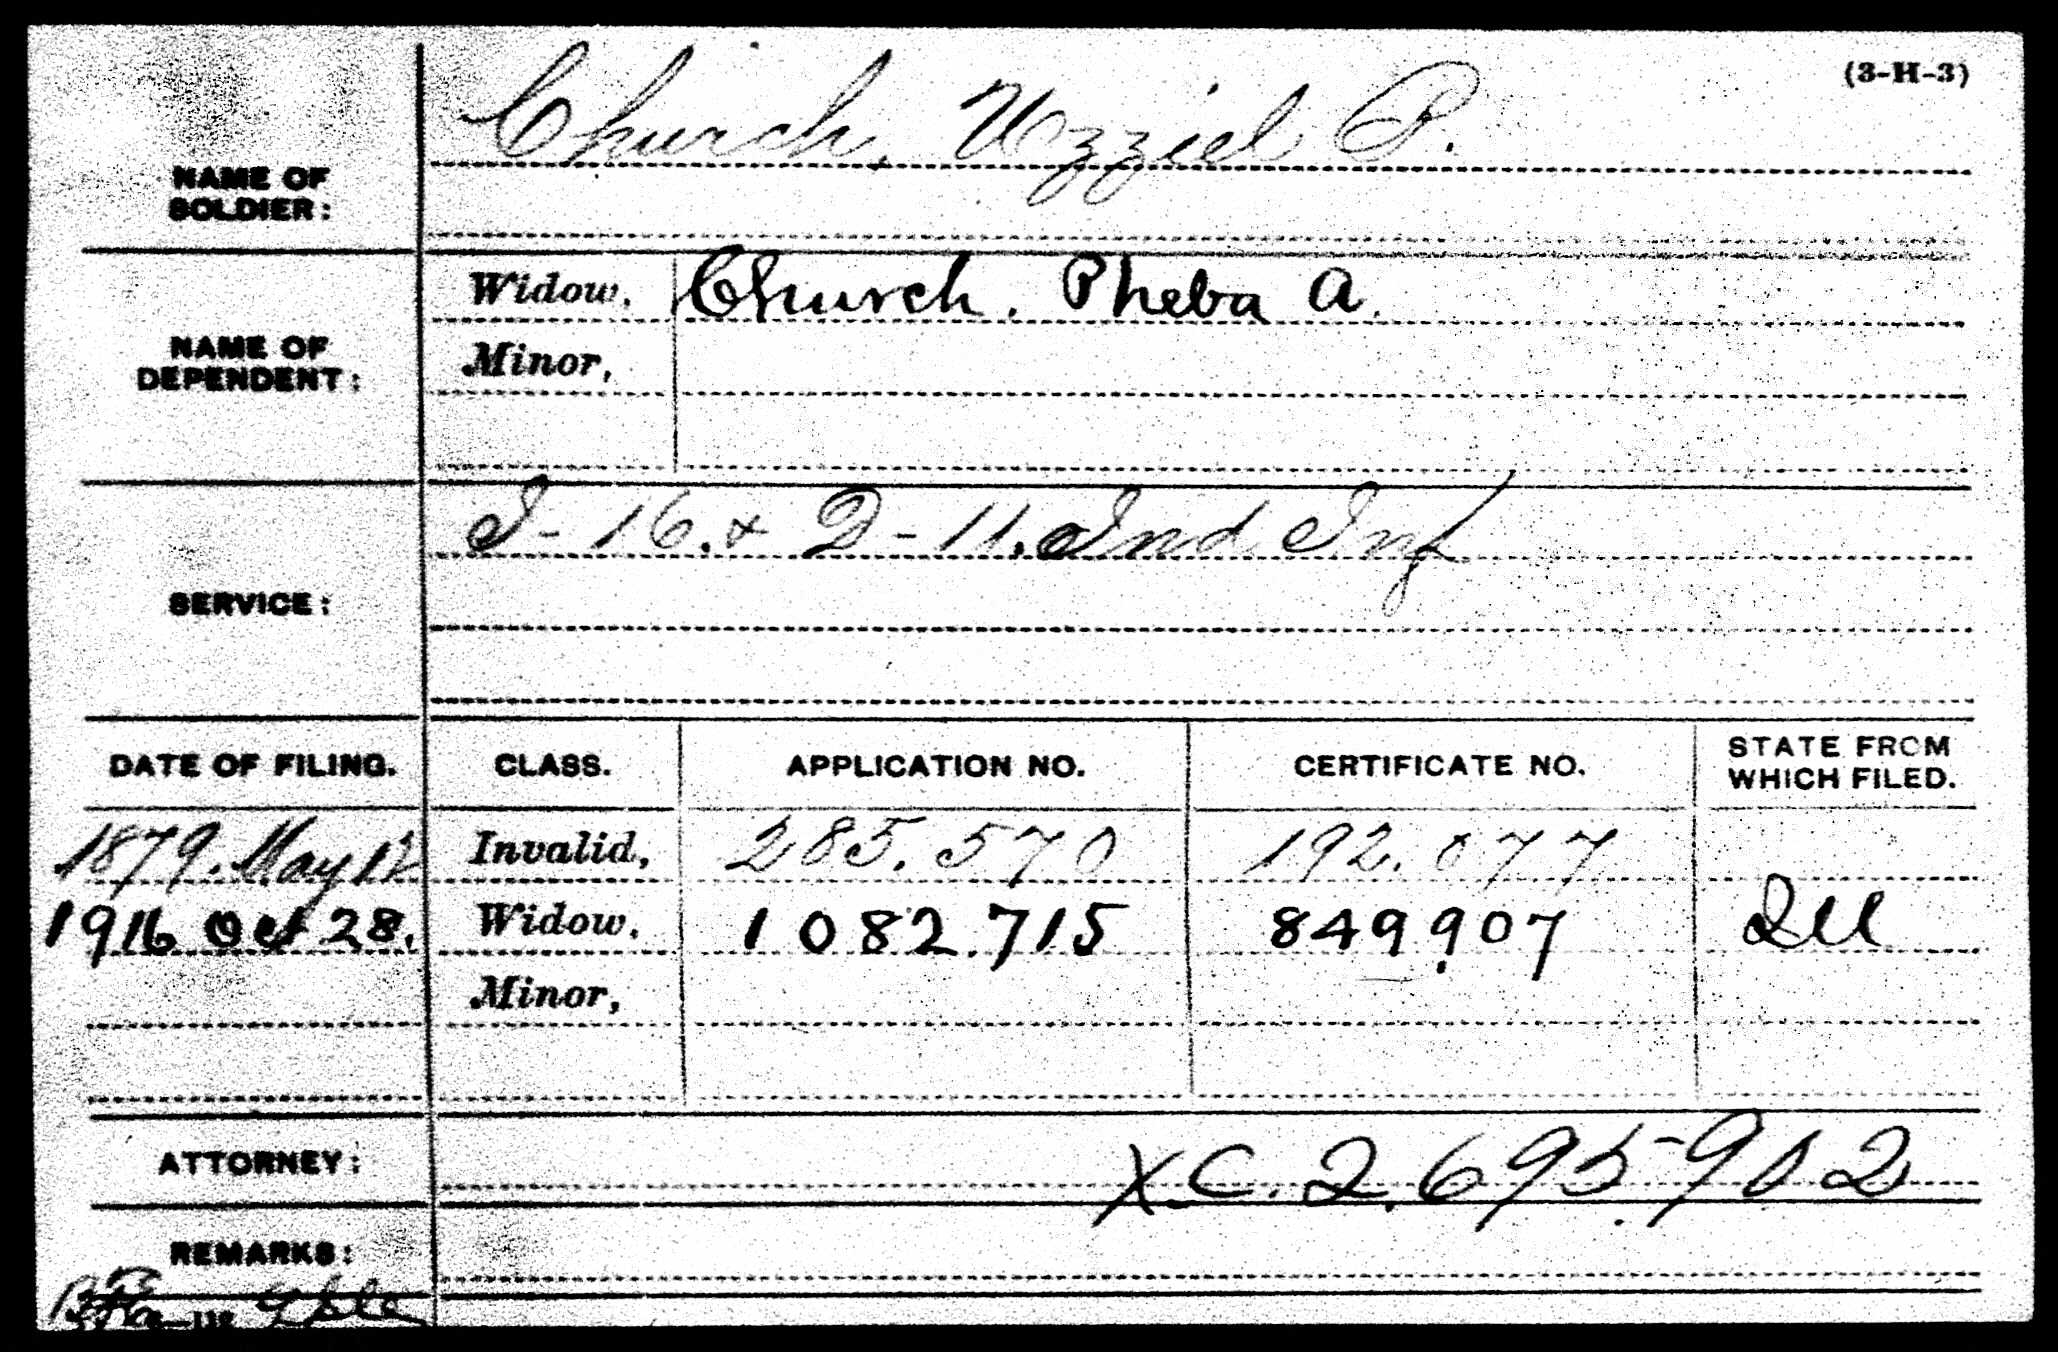 (3-H-3)
NAME OF SOLDIER: Church, Uzziel P.
NAME OF DEPENDENT:
Widow, Church. Pheba A.
Minor,
SERVICE: I-16. & D-11. Ind Inf
DATE OF FILING. CLASS. APPLICATION NO. CERTIFICATE NO. STATE FROM WHICH FILED.
1879. May 12 Invalid, 285.570 192.077
1916 Oct 28. Widow, 1082.715 849.907 Ill
Minor,
ATTORNEY: X.C. 2.695.902
REMARKS: